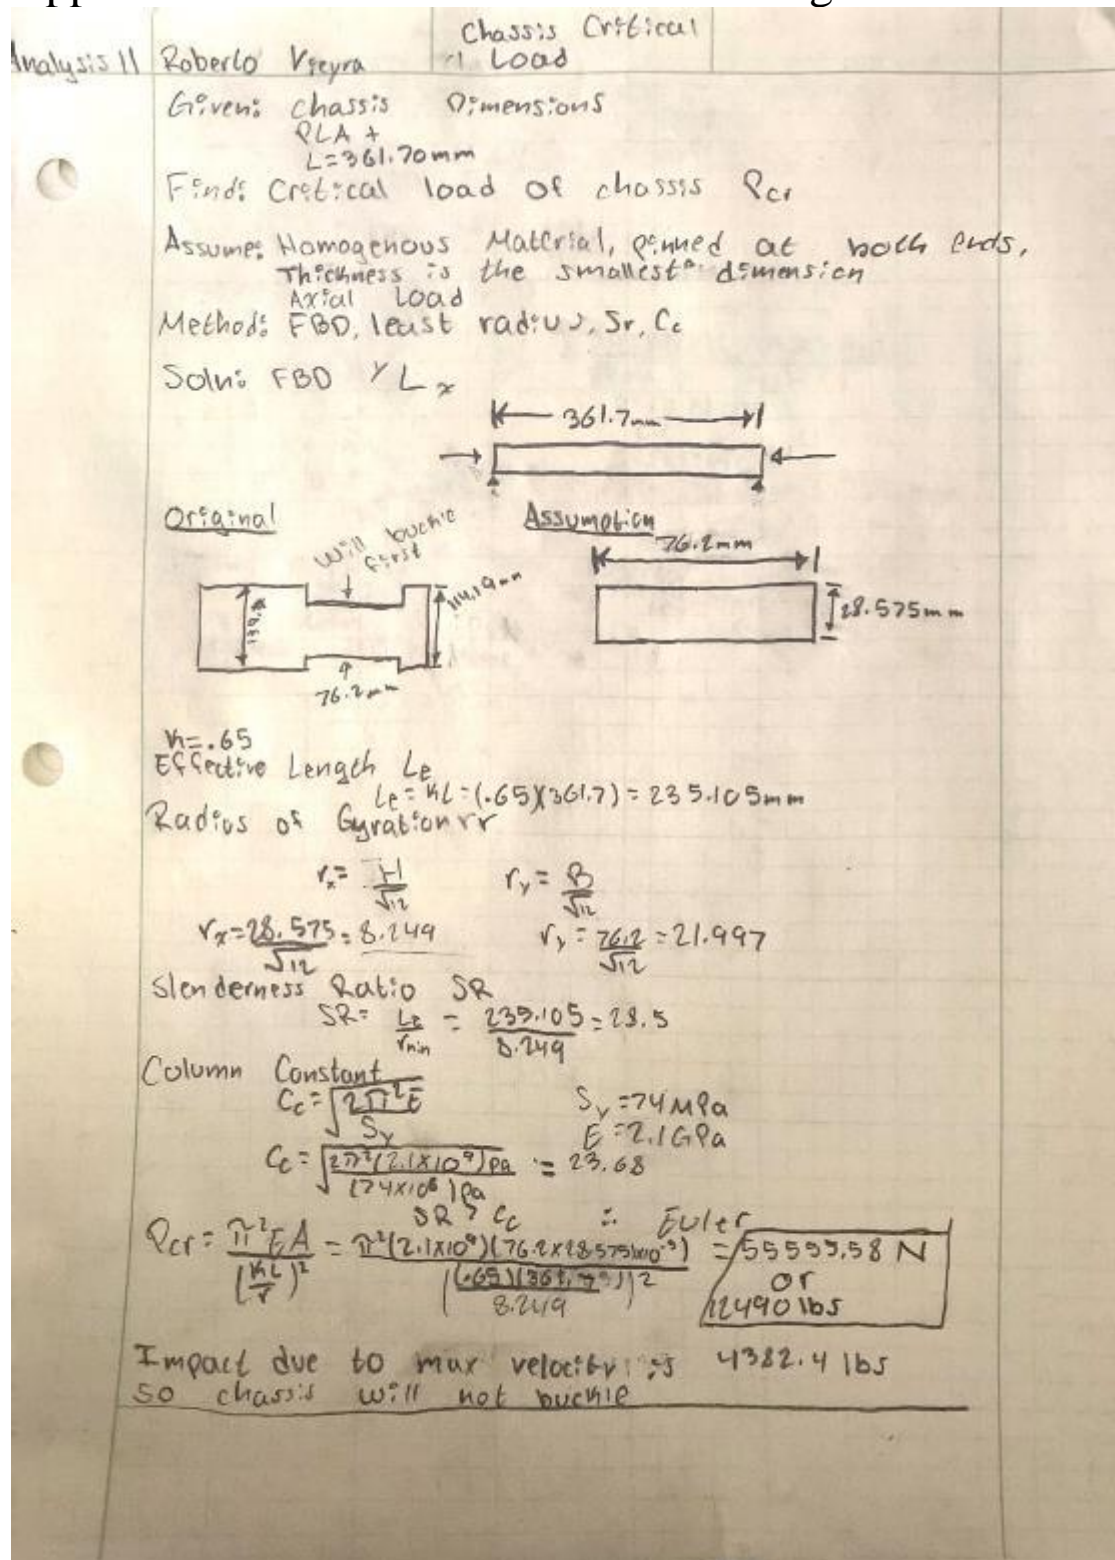 Chassis Critical
Analysis 11 Roberto Vieyra Load
Given: chassis Dimensions
PLA +
L=361.70mm
Find: Critical load of chassis Pcr
Assume: Homogenous Material, pinned at both ends,
Thickness is the smallest dimension
Axial Load
Method: FBD, least radius, Sr, Cc
Soln: FBD Y L x
361.7mm
Original
will buckle
first
Assumption
76.2mm
114.19mm
28.575mm
76.2mm
K=.65
Effective Length Le
Le = KL = (.65)(361.7) = 235.105mm
Radius of Gyration r
rx = H/√12 ry = B/√12
rx = 28.575/√12 = 8.249 ry = 76.2/√12 = 21.997
Slenderness Ratio SR
SR = Le/rmin = 235.105/8.249 = 28.5
Column Constant
Cc = √(2π²E/Sy) Sy = 74 MPa
E = 2.1GPa
Cc = √(2π²(2.1x10⁹)pa/(74x10⁶)pa) = 23.68
SR > Cc ∴ Euler
Pcr = π²EA/(KL/r)² = π²(2.1x10⁹)(76.2x28.575)/((.65)(361.7)/8.249)² = 55555.58 N
or
12490 lbs
Impact due to max velocity is 4382.4 lbs
so chassis will not buckle